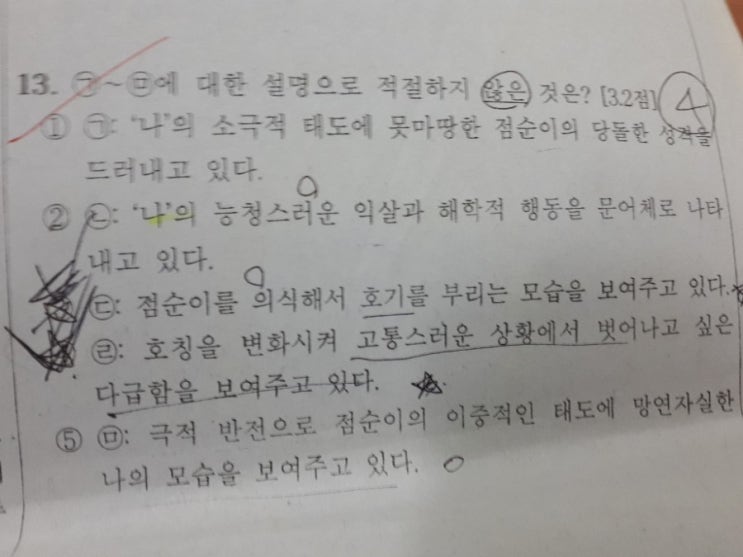 13. ㉠~㉤에 대한 설명으로 적절하지 않은 것은? [3.2점] 4
① ㉠: ‘나’의 소극적 태도에 못마땅한 점순이의 당돌한 성격을
드러내고 있다.
② ㉡: ‘나’의 능청스러운 익살과 해학적 행동을 문어체로 나타
내고 있다.
㉢: 점순이를 의식해서 호기를 부리는 모습을 보여주고 있다.
㉣: 호칭을 변화시켜 고통스러운 상황에서 벗어나고 싶은
다급함을 보여주고 있다.
⑤ ㉤: 극적 반전으로 점순이의 이중적인 태도에 망연자실한
나의 모습을 보여주고 있다.